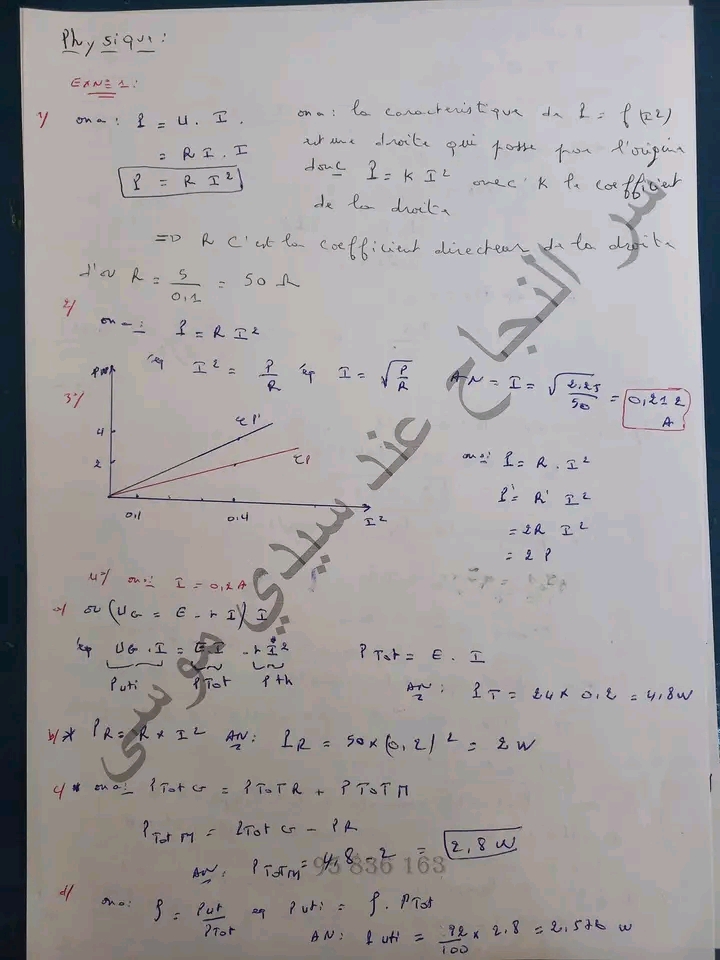 Physique:
EXN=1:
1/ ona: P = U. I.
= R I. I
P = R I²
ona: la caracteristique de P = f(I²)
est une droite qui passe par l'origine
donc P = K I² avec K le coefficient
de la droite
=D R c'est la coefficient directeur de la droite
d'ou R = 5/0,1 = 50 Ω
2/
ona: P = R I²
I² = P/R I = √P/R AN = I = √2,25/50 = 0,212 A
3/
4
2
0,1 0,4 I²
P'
P
ona: P = R. I²
P' = R' I²
= 2R I²
= 2 P
4/ ona: I = 0,2A
a/ ou (UG = E - r I) I
UG. I = E.I - r I²
Puti PTot Pth
PTot = E. I
AN: PT = 24 x 0,2 = 4,8 W
b/ * PR = R x I² AN: PR = 50x(0,2)² = 2 W
c/ * ona: PTot G = PTOT R + PTOT M
PTot M = PTot G - PR
AN: PTOTM = 4,8 - 2 = 2,8 W
93 836 163
d/ ona: ρ = Put/PTot eq Puti = ρ. PTot
AN: Puti = 92/100 x 2,8 = 2,576 W
سر النجاح عند سيدي موسى